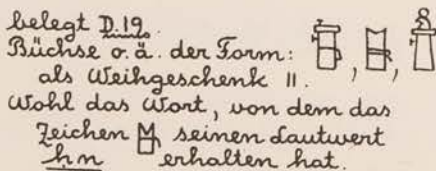 belegt D.19.
Büchse o. ä. der Form: , ,
als Weihgeschenk II.
Wohl das Wort, von dem das
Zeichen seinen Lautwert
hn erhalten hat.